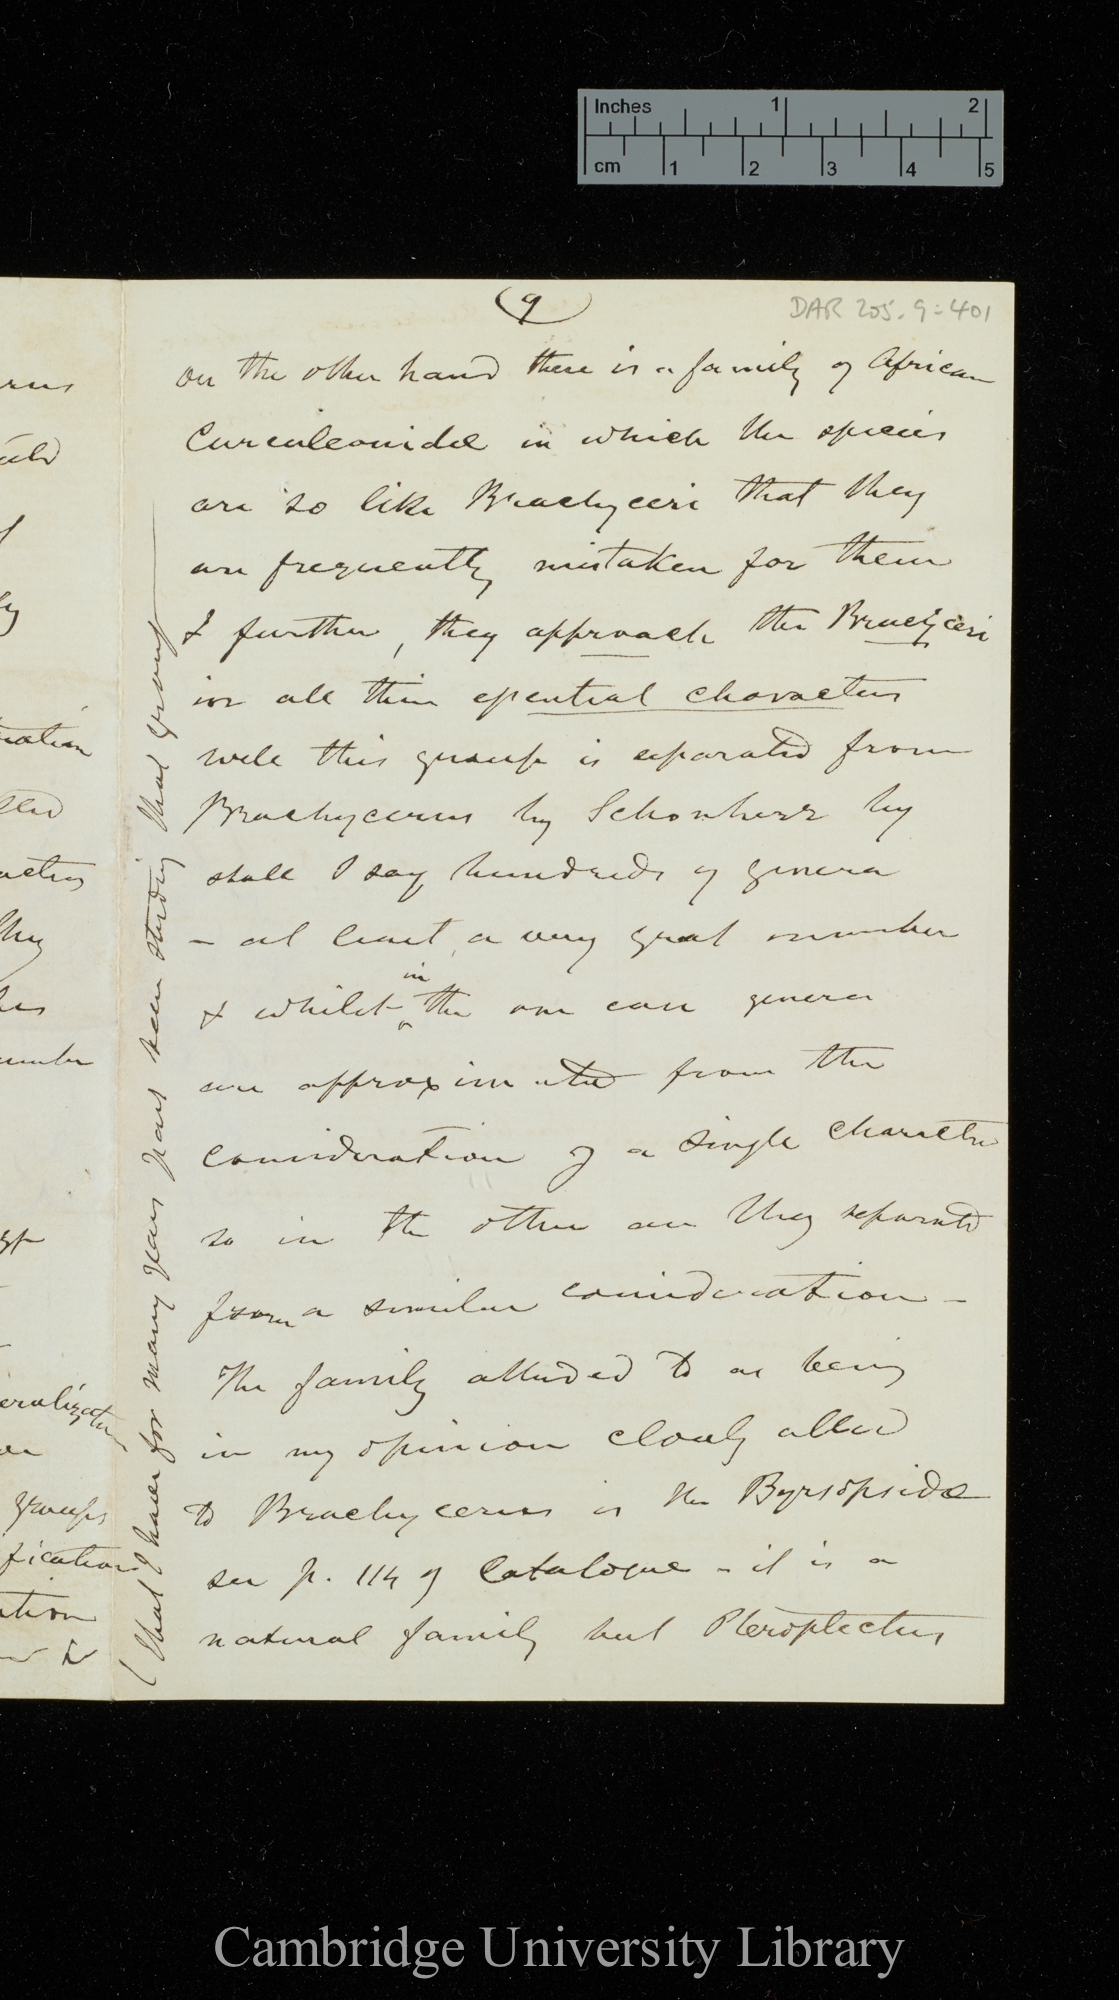 Inches 1 2
cm 1 2 3 4 5
9
DAR 205.9:401
on the other hand there is a family of African
Curculeonidæ in which the species
are so like Brachyceri that they
are frequently mistaken for them
& further, they approach the Brachyceri
in all their essential characters
well this group is separated from
Brachycerus by Schonherr by
shall I say hundreds of genera
– at least a very great number
& whilst in the one case genera
are approximated from the
consideration of a single character
so in the other are they separated
from a similar consideration –
The family alluded to as being
in my opinion closely allied
to Brachycerus is the Byrsopsidæ
see p. 114 of Catalogue – it is a
natural family but Pteroplectus
(that I have for many years past been studying that group
ation
eralizating
groups
fication
Cambridge University Library